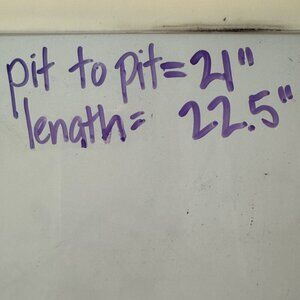 pit to pit= 21"
length= 22.5"